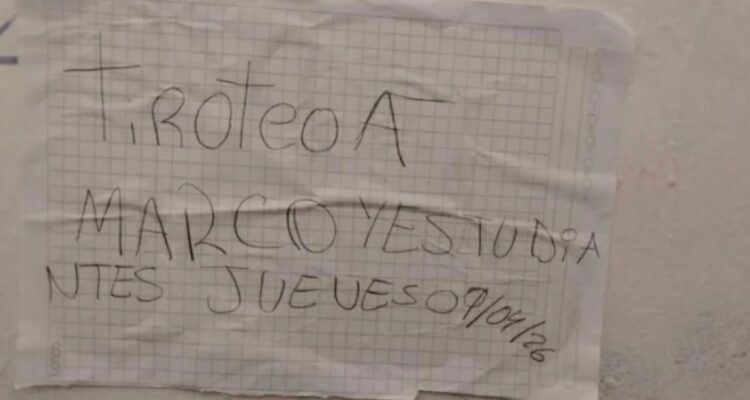 TiROTeO A
MARCO YESTUDiA
NTES JUEVES 09/04/26